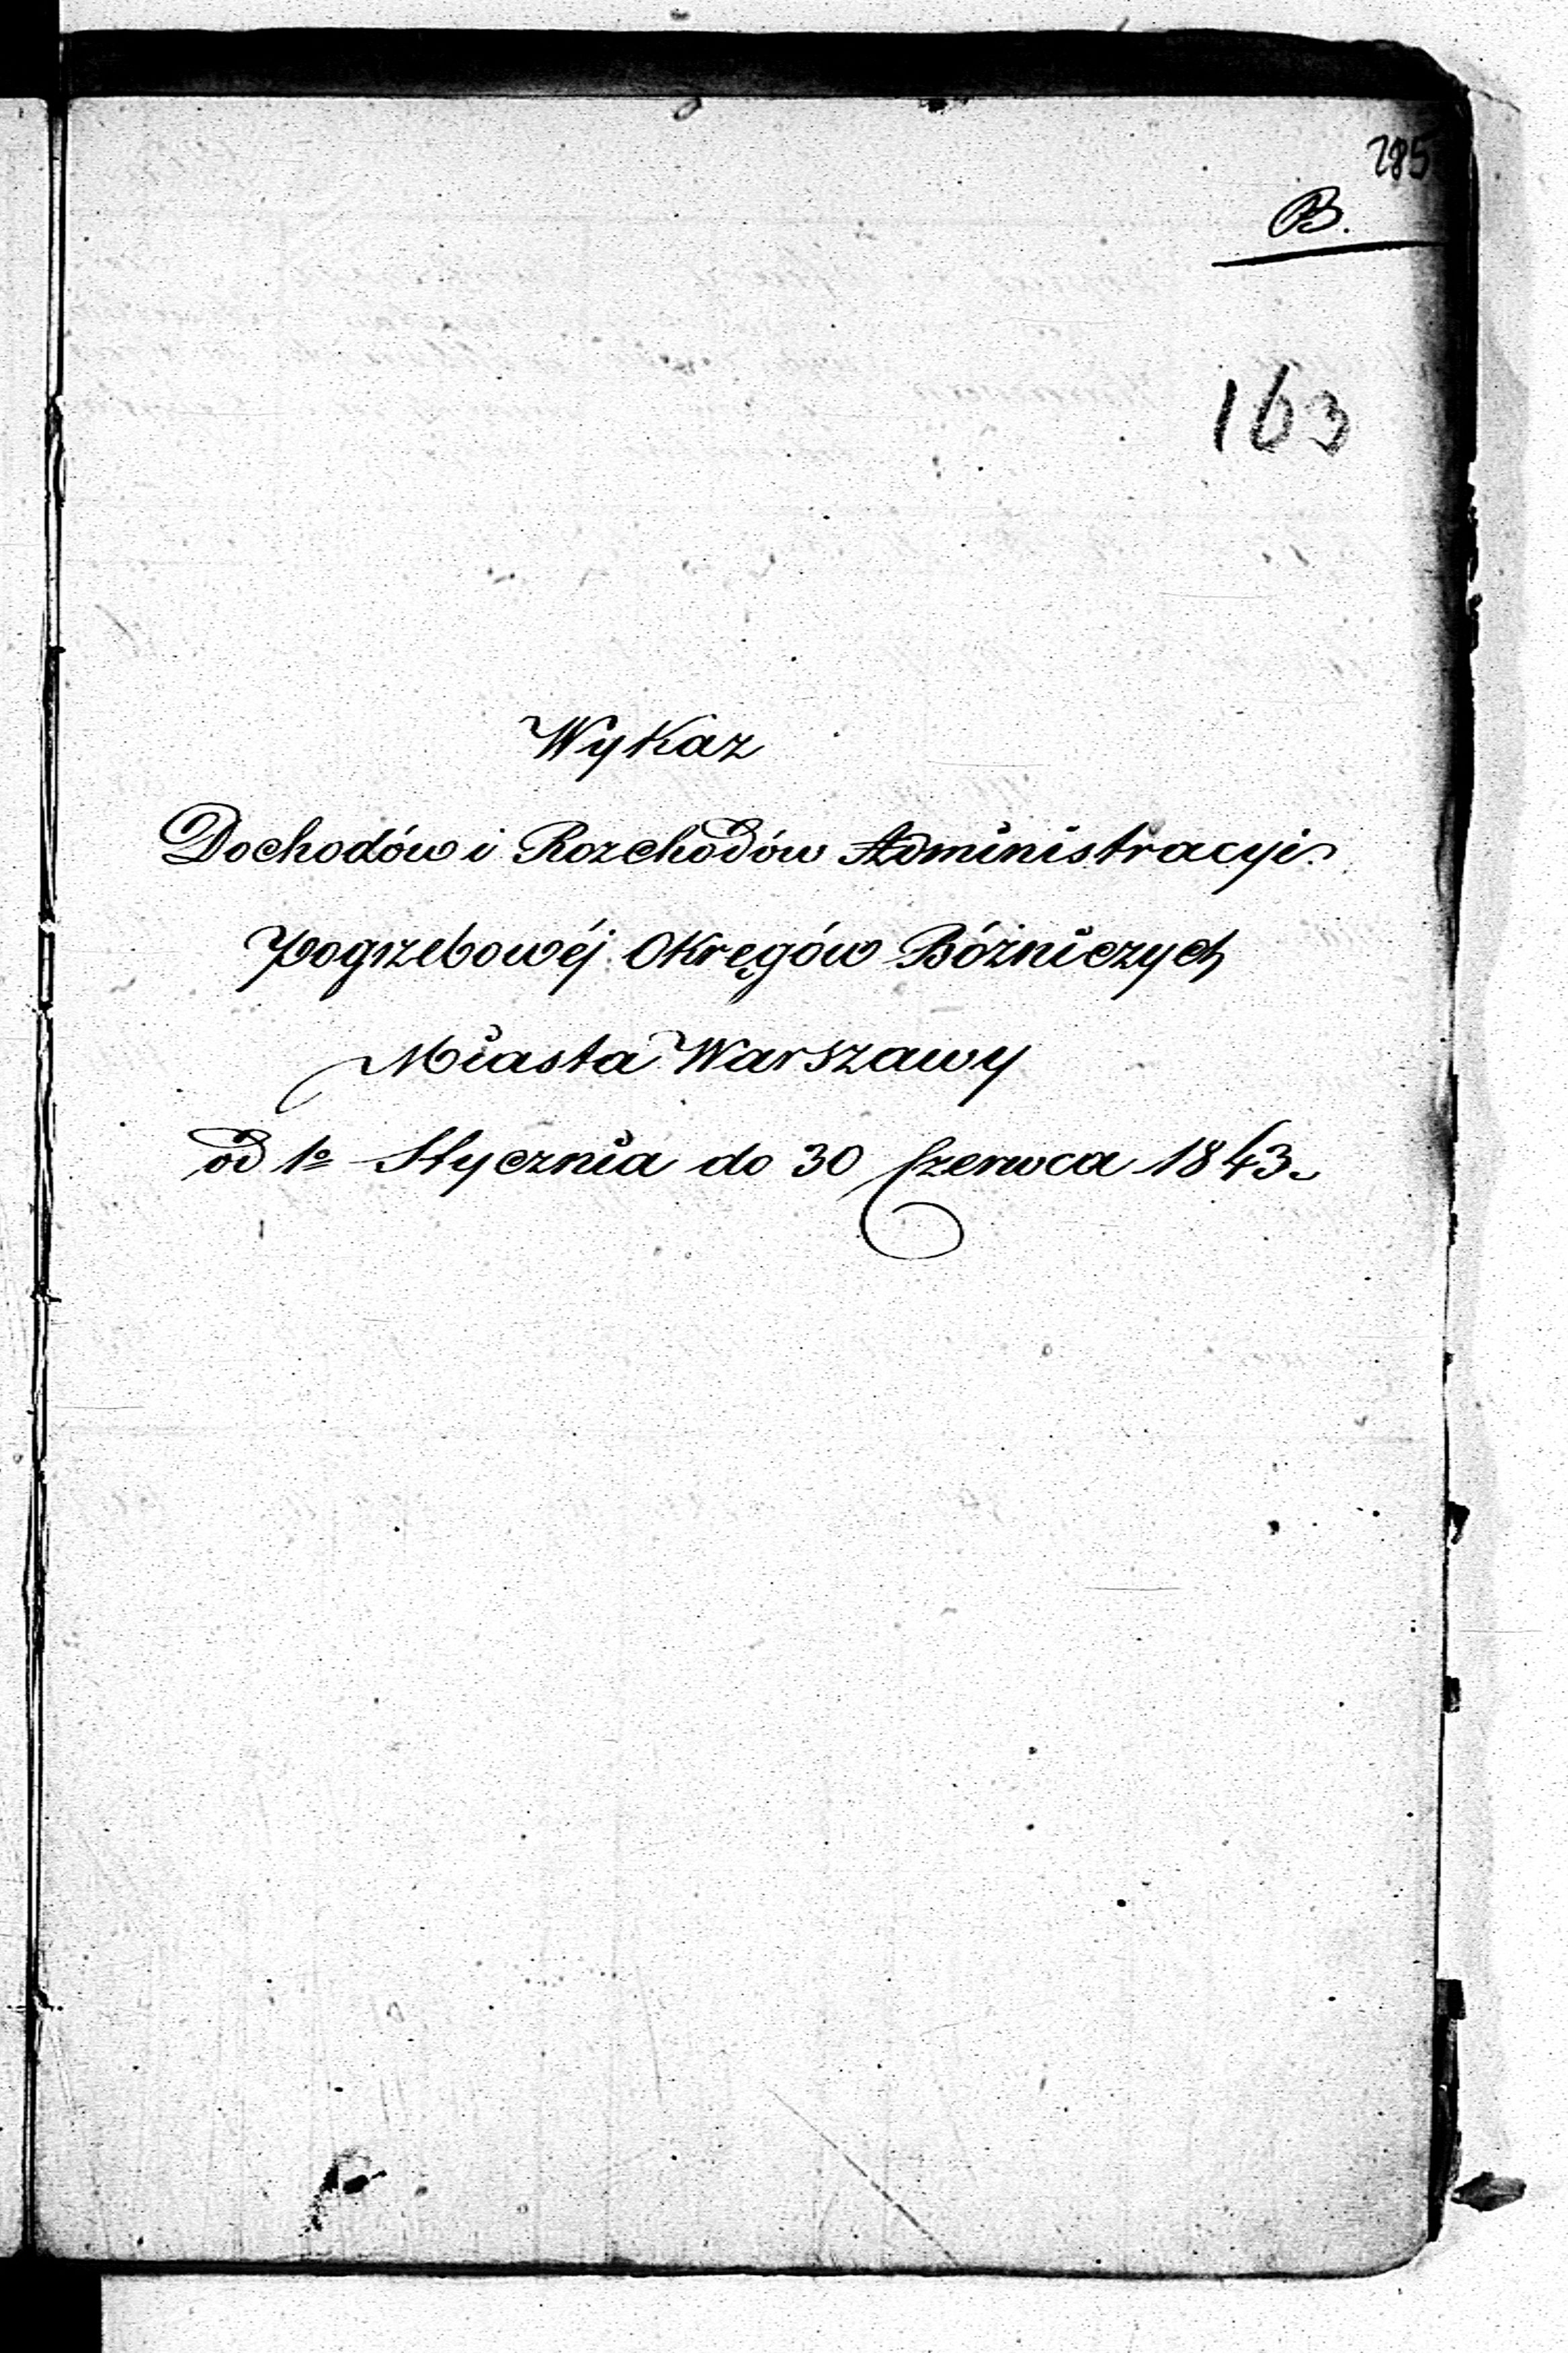 285
B.
163
Wykaz
Dochodów i Rozchodów Administracyi
Pogrzebowéj Okręgów Bóżniczych
Miasta Warszawy
od 1º Stycznia do 30 Czerwca 1843.